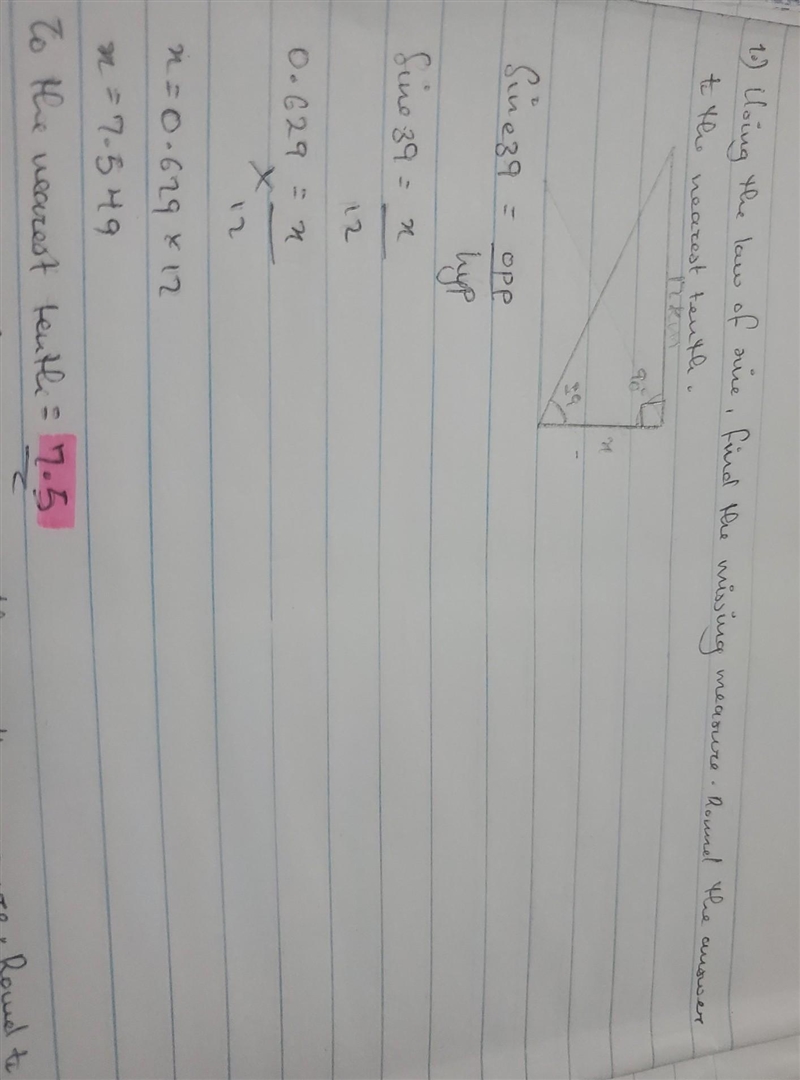 10) Using the law of sine, find the missing measure. Round the answer
to the nearest tenth.
12km
90°
39
x
Sine39 = opp
hyp
Sine39 = x
12
0.629 = x
12
x = 0.629 x 12
x = 7.549
To the nearest tenth = 7.5
Round to